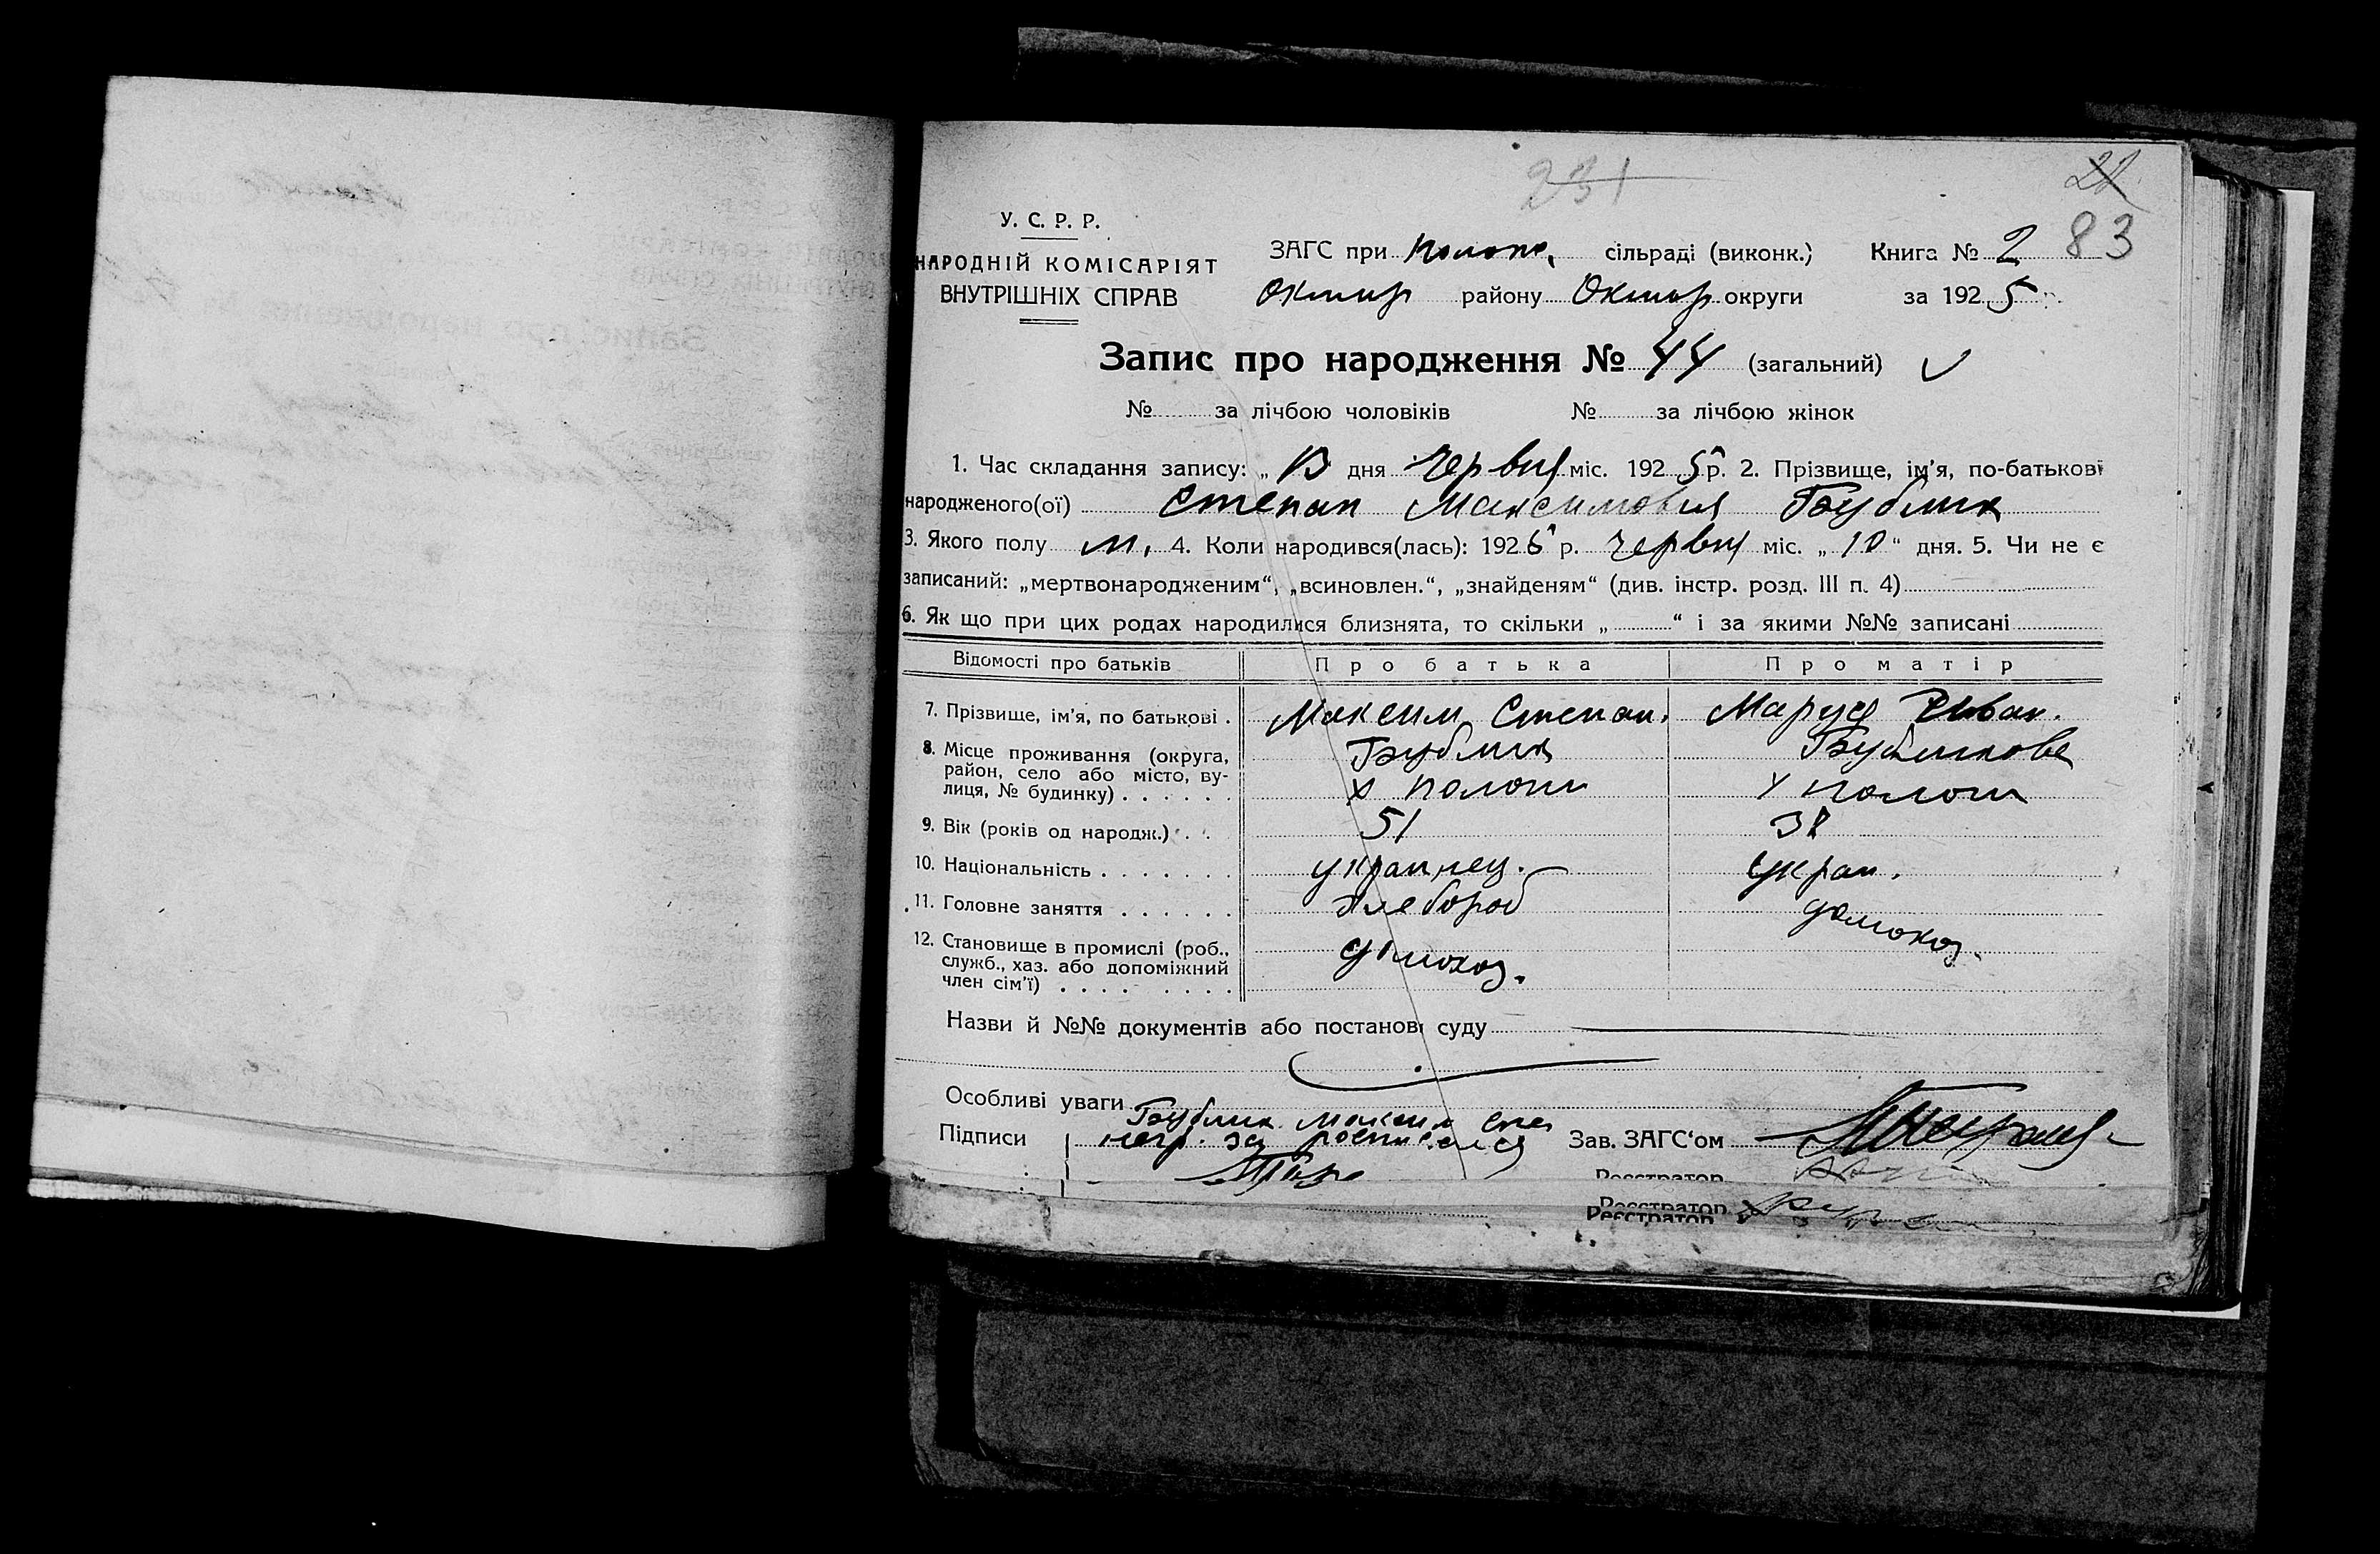 231
22
83
У. С. Р. Р.
НАРОДНІЙ КОМІСАРІЯТ
ВНУТРІШНІХ СПРАВ
ЗАГС при сільраді (виконк.) Книга № 2
Охтир району Охтир округи за 1925 р.
Запис про народження № 44 (загальний)
№ за лічбою чоловіків № за лічбою жінок
1. Час складання запису: „ 13 дня Червня міс. 1925 р. 2. Прізвище, ім'я, по-батькові
народженого(ої) Степан Максимовия Бублик
3. Якого полу м. 4. Коли народився(лась): 1925 р. червня міс. „ 10 “ дня. 5. Чи не є
записаний: „мертвонародженим“, „всиновлен.“, „знайденям“ (див. інстр. розд. III п. 4)
6. Як що при цих родах народилися близнята, то скільки „ “ і за якими №№ записані
Відомості про батьків Про батька Про матір
7. Прізвище, ім'я, по батькові . Максим Степан. Маруся Иван.
8. Місце проживання (округа, район, село або місто, вулиця, № будинку) . . . . . . Бублик Бубликова
х х
9. Вік (років од народж.) . . 51 38
10. Національність . . . . . . . украинец. Украи.
11. Головне заняття . . . . . . хлебороб домохоз.
12. Становище в промислі (роб.,
служб., хаз. або допоміжний домохоз.
член сім'ї) . . . . . . . .
Назви й №№ документів або постанов суду
Особливі уваги Бублик Максим Сте
Підписи негр. за росписался Зав. ЗАГС‘ом
Реєстратор
Реєстратор
Реєстратор